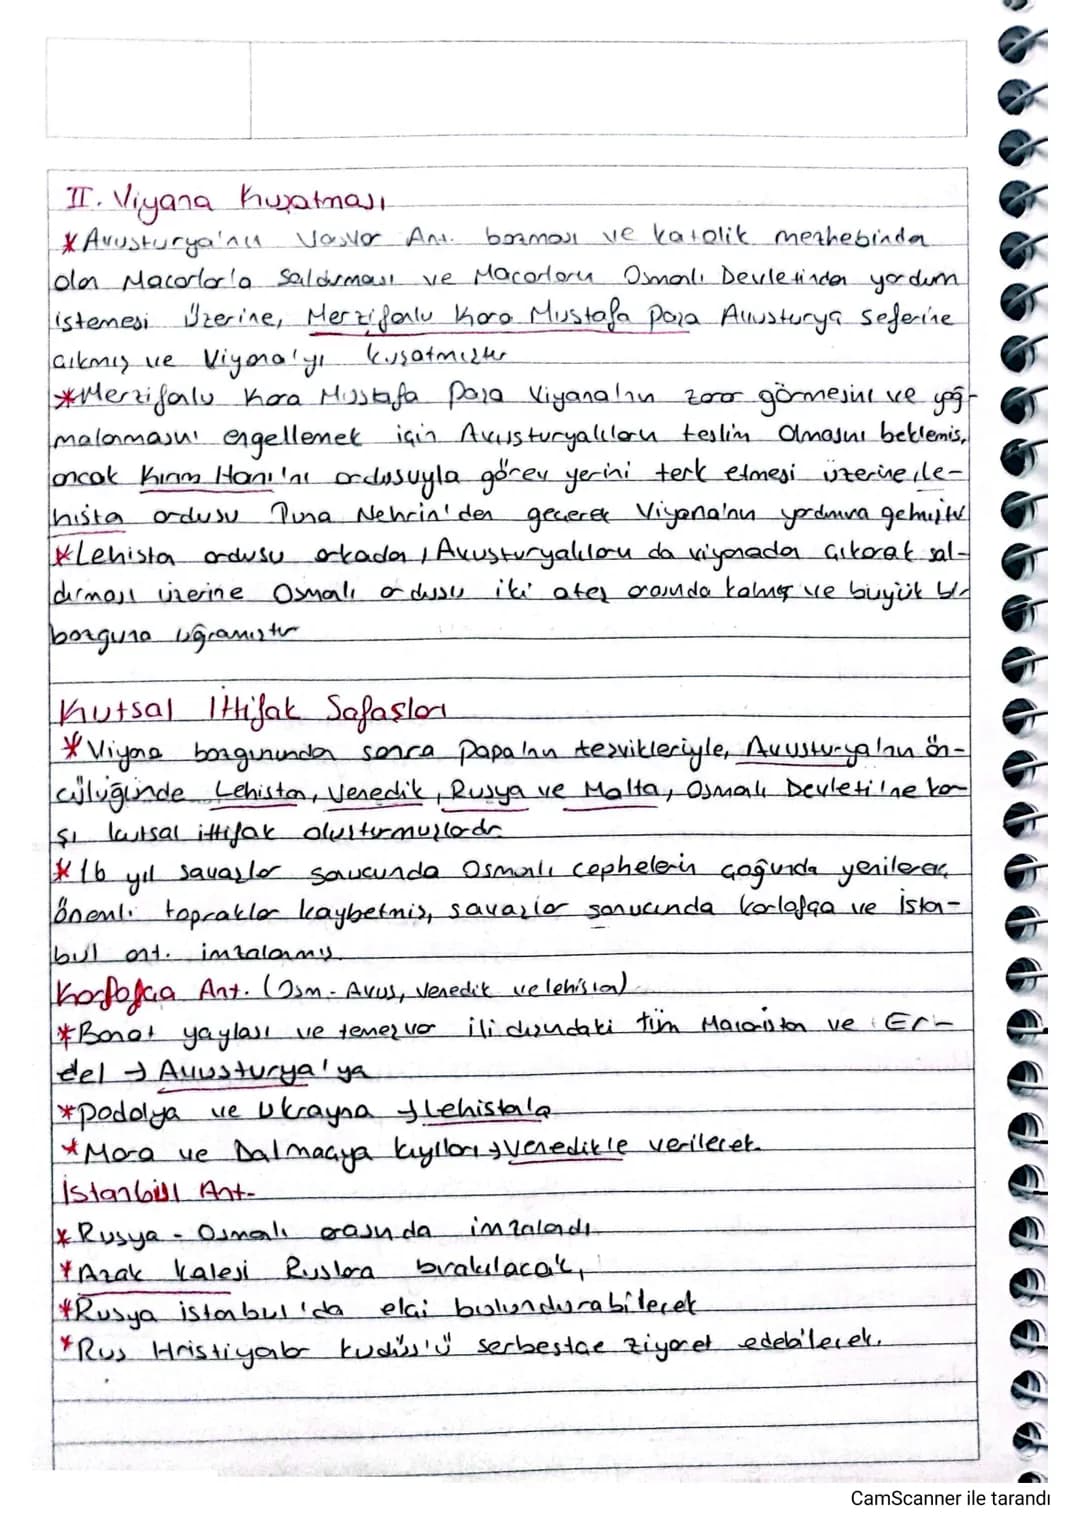 II. Viyana Kuşatması
* Avusturya'nın Vasvar Ant. bozması ve katolik mezhebinden
olan Macarlar'a saldırması ve Macarların Osmanlı Devletinden yardım
istemesi üzerine, Merzifonlu Kara Mustafa Paşa Avusturya seferine
çıkmış ve Viyana'yı kuşatmıştır
* Merzifonlu Kara Mustafa Paşa Viyana'nın zarar görmesini ve yağ-
malanmasını engellemek için Avusturyalıların teslim olmasını beklemiş,
ancak Kırım Hanı'nı ordusuyla görev yerini terk etmesi üzerine, Le-
hista ordusu Tuna Nehrin'den geçerek Viyana'nın yardımına gelmiştir
* Lehista ordusu arkadan, Avusturyalıların da viyanadan çıkarak sal-
dırması üzerine Osmalı ordusu iki ateş arasında kalmış ve büyük bir
bozguna uğramıştır
Kutsal İttifak Safaşları
* Viyana bozgunundan sonra Papa'nın teşvikleriyle, Avusturya'nın ön-
cülüğünde Lehistan, Venedik, Rusya ve Malta, Osmalı Devleti'ne kar
şı kutsal ittifak oluşturmuşlardır
* 16 yıl savaşlar sonucunda Osmanlı cephelerin çoğunda yenilerek,
önemli topraklar kaybetmiş, savaşlar sonucunda Karlofça ve İstan-
bul ant. imzalanmış.
Karlofça Ant. (Osm - Avus, Venedik ve lehistan)
* Banat yaylası ve temeşvar ili dışındaki tüm Macaristan ve Er-
del → Avusturya'ya
* Podolya ve Ukrayna → Lehistala
* Mora ve Dalmaçya kıyıları → Venedikle verilecek.
İstanbul Ant-
* Rusya - Osmalı arasında imzalandı
* Azak kalesi Ruslara bırakılacak,
* Rusya istanbul'da elçi bulundurabilecek
* Rus Hristiyanlar kudüs'ü serbestçe ziyaret edebilecek.
CamScanner ile tarandı